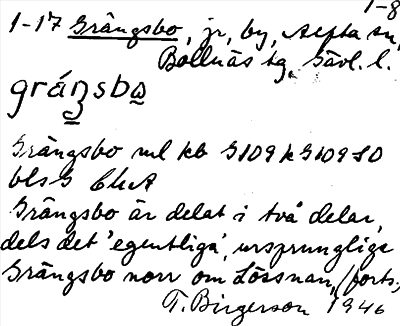 1-8
1-17 Grängsbo, jr, by, Alfta sn,
Bollnäs tg, Gävl. l.
gráŋsbo
Grängsbo ml kb G109 k G109 SO
bls G ChA
Grängsbo är delat i två delar,
dels det 'egentliga', ursprunglige
Grängsbo norr om Lössnan, (forts.)
T. Birgerson 1946